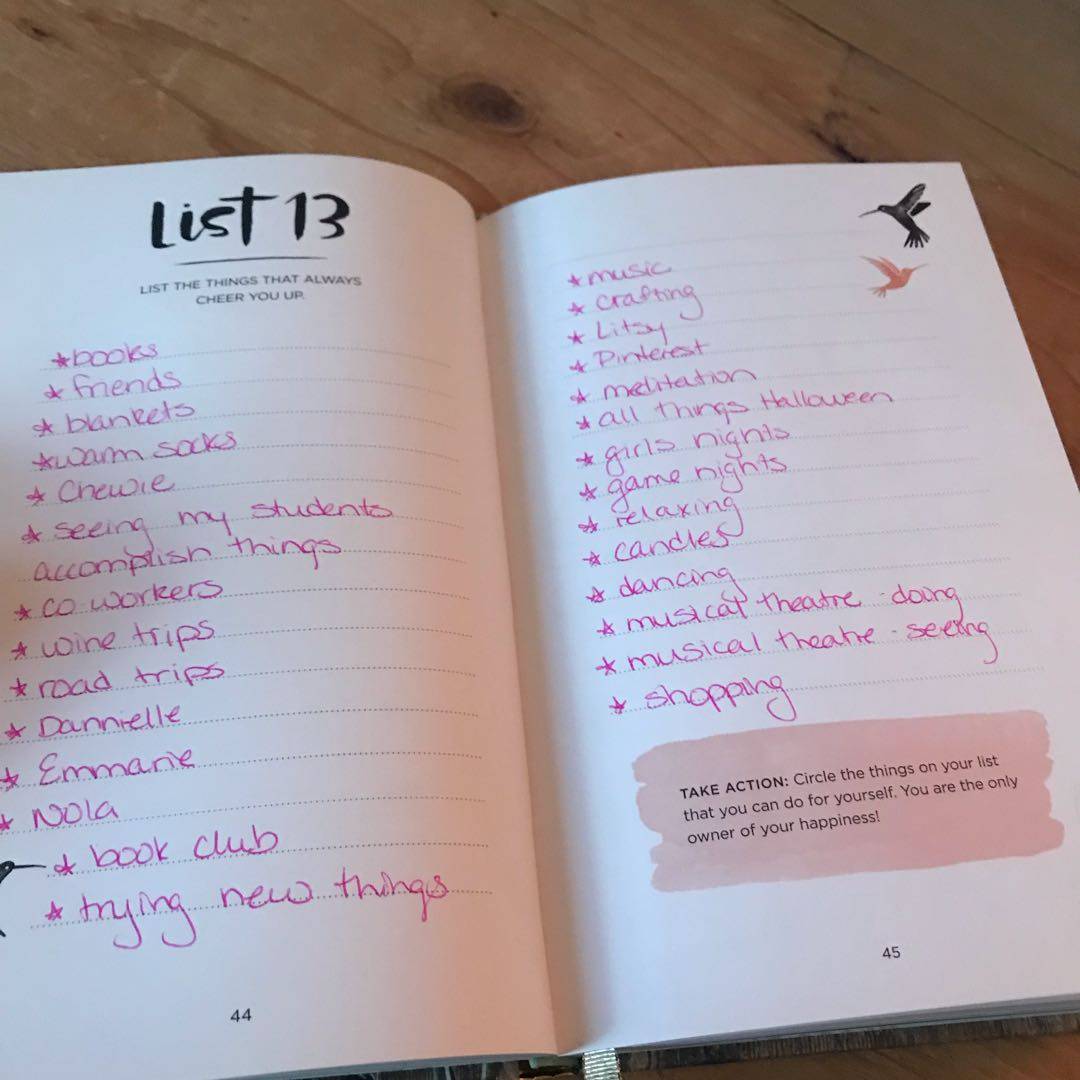 List 13
LIST THE THINGS THAT ALWAYS
CHEER YOU UP.
*books
* friends
* blankets
*warm socks
* Chewie
* seeing my students
accomplish things
* co workers
* wine trips
* road trips
* Dannielle
* Emmarie
* Nola
* book club
* trying new things
44
* music
* crafting
* Litsy
* Pinterest
* meditation
* all things Halloween
* girls nights
* game nights
* relaxing
* candles
* dancing
* musical theatre - doing
* musical theatre - seeing
* shopping
TAKE ACTION: Circle the things on your list
that you can do for yourself. You are the only
owner of your happiness!
45